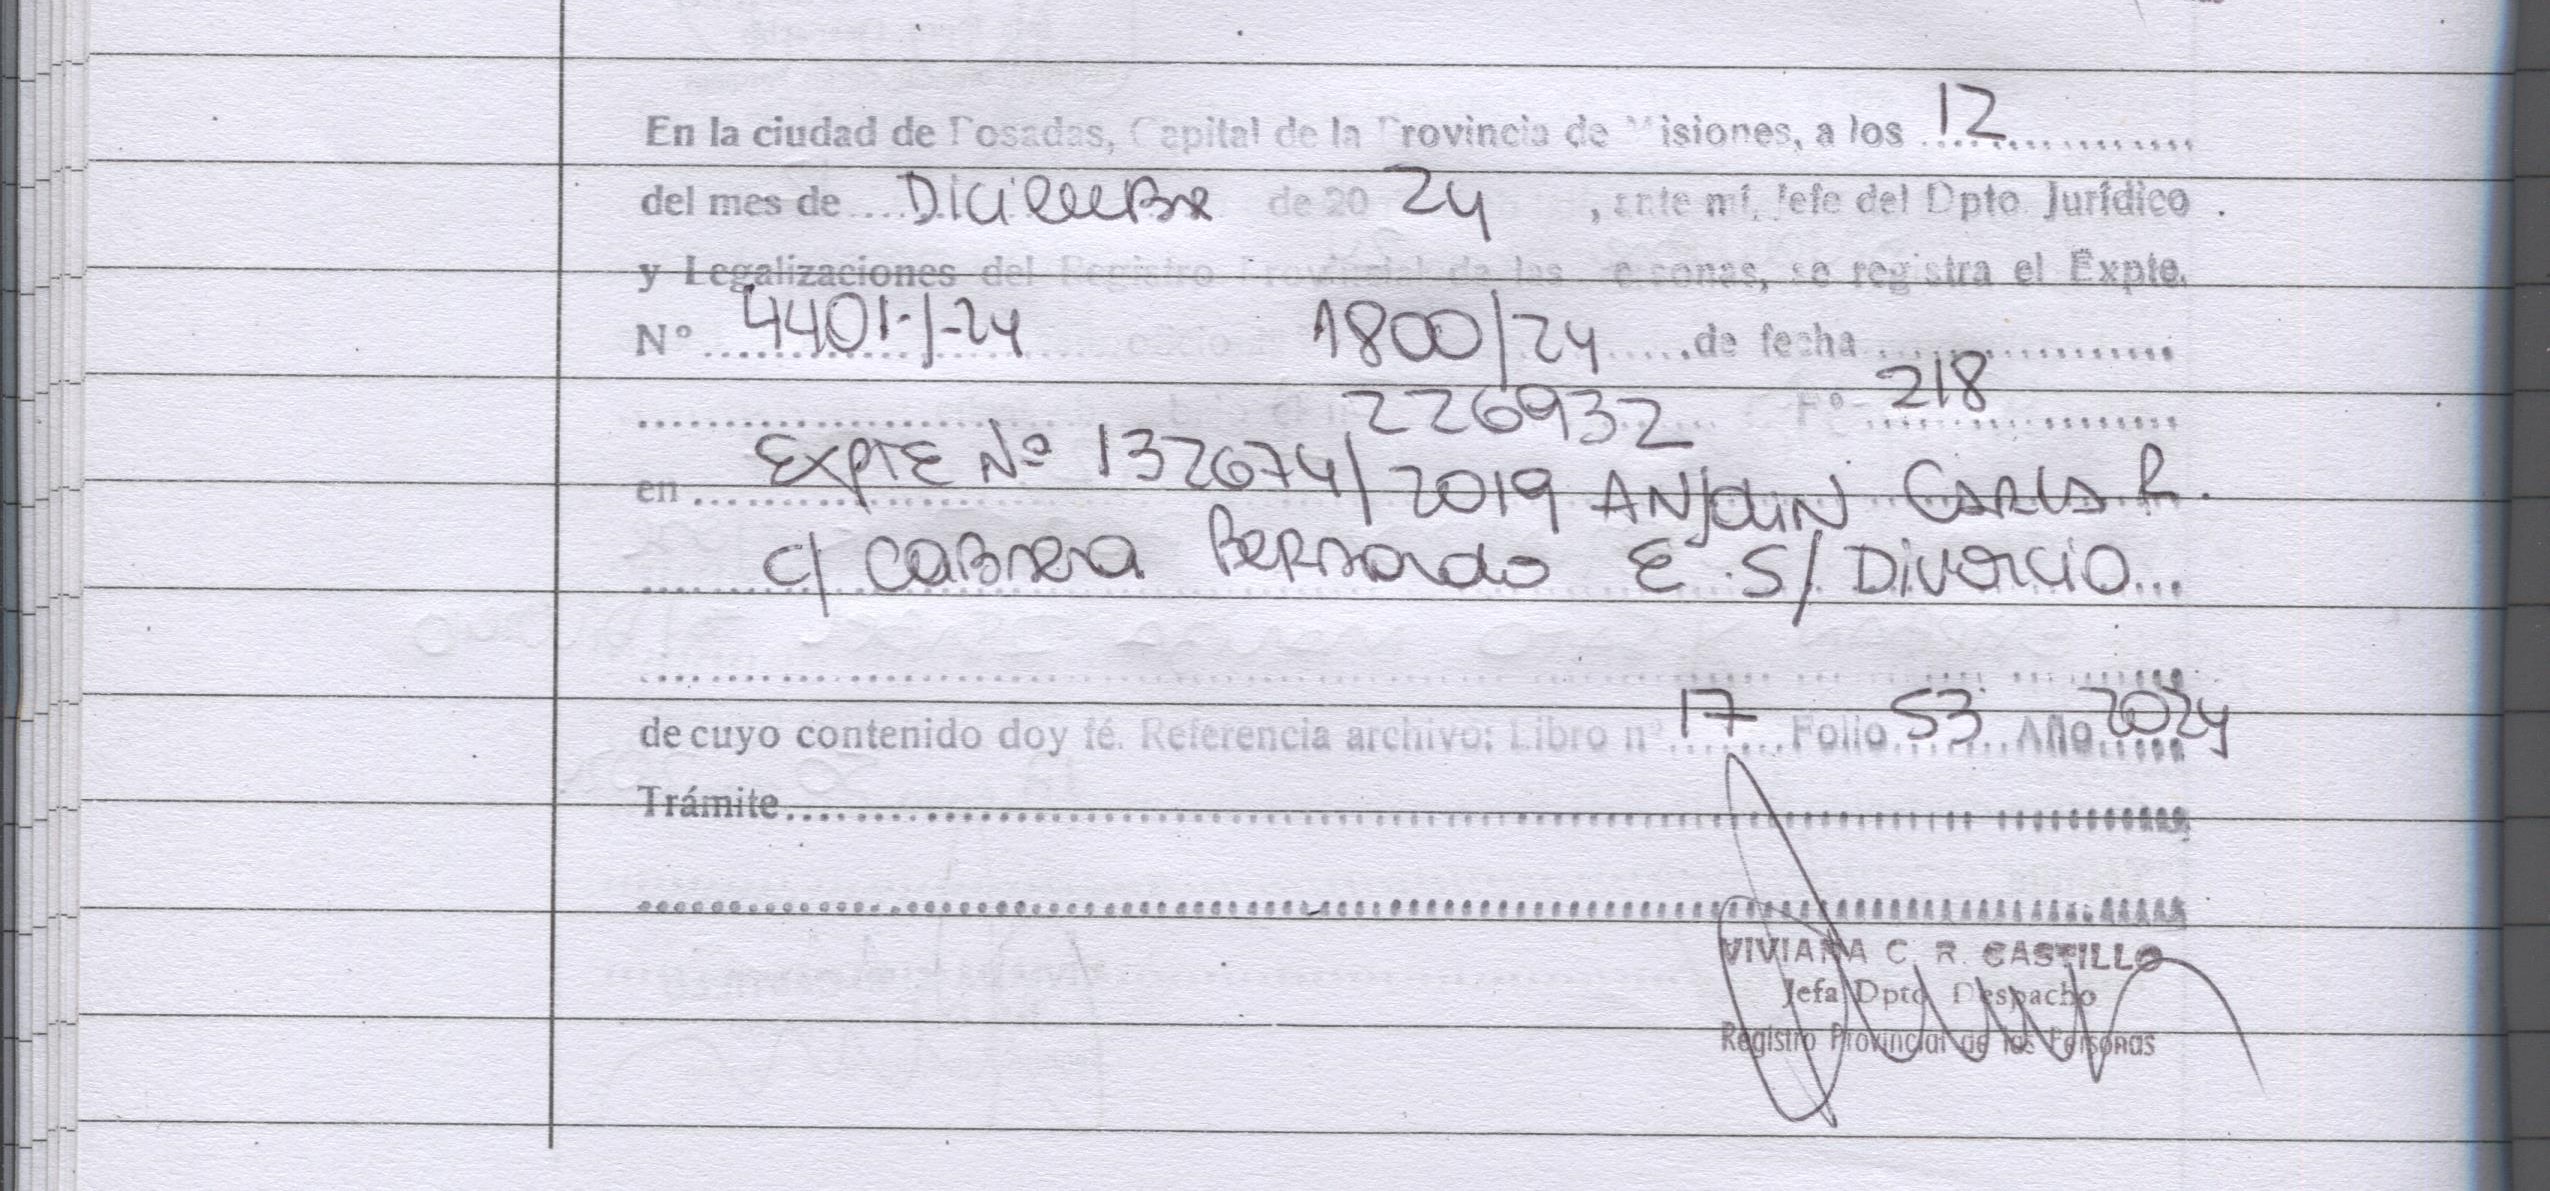 En la ciudad de Posadas, Capital de la Provincia de Misiones, a los 12
del mes de Diciembre de 20 24, ante mí, Jefe del Dpto Jurídico
y Legalizaciones del Registro Provincial de las Personas, se registra el Expte.
Nº 4401-/-24 oficio 1800/24 de fecha
226932 Fº 218
en Expte Nº 132674/2019 Carla R.
c/ Cabrera Bernardo E s/ Divorcio...
de cuyo contenido doy fé. Referencia archivo: Libro nº 17 Folio 53 Año 2024
Trámite
VIVIANA C. R. CASTILLO
Jefa Dpto Despacho
Registro Provincial de las Personas